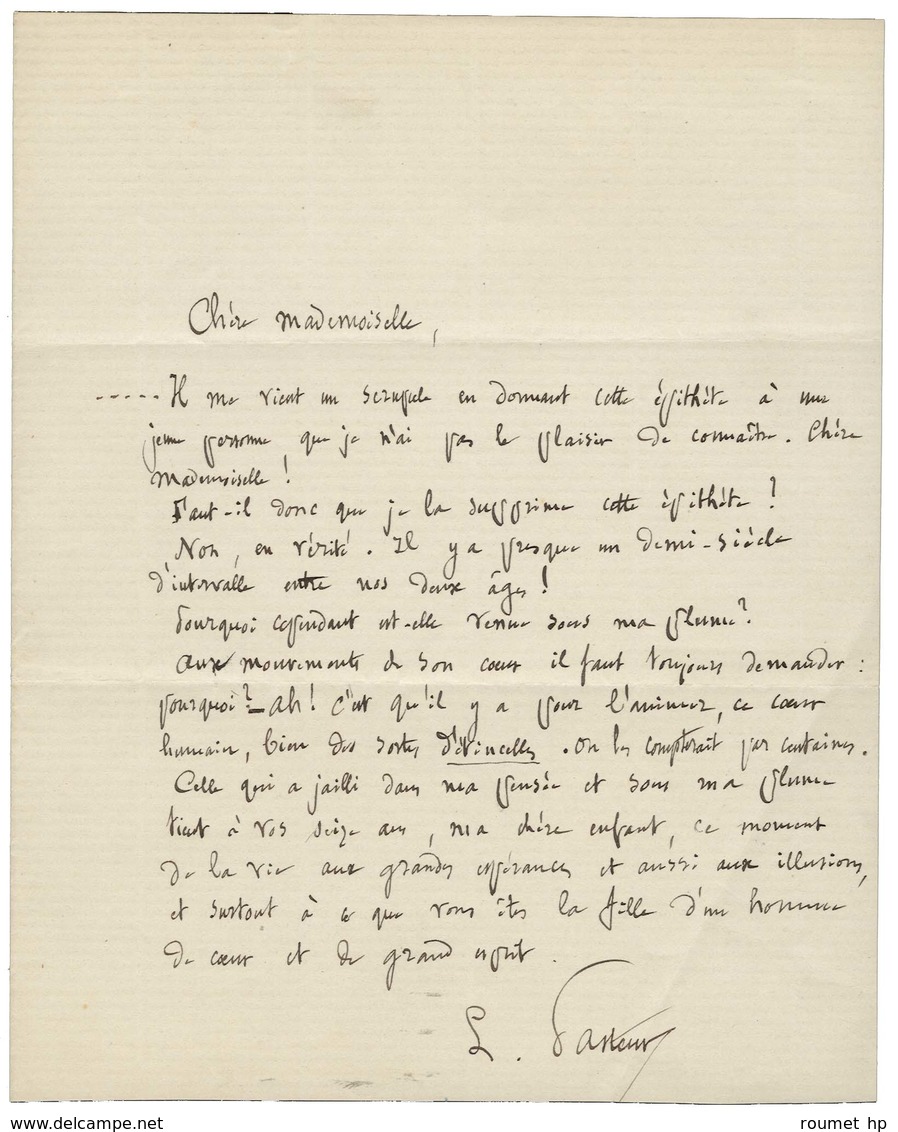 Chère mademoiselle,
----- Il me vient un scrupule en donnant cette épithète à une
jeune personne que je n'ai pas le plaisir de connaître. Chère
mademoiselle !
Faut-il donc que je la supprime cette épithète ?
Non, en vérité. Il y a presque un demi-siècle
d'intervalle entre nos deux âges !
Pourquoi cependant est-elle venue sous ma plume ?
Aux mouvements de son cœur il faut toujours demander :
pourquoi ? – Ah ! C'est qu'il y a pour l'animer, ce cœur
humain, bien des sortes d'étincelles. On les compterait par centaines.
Celle qui a jailli dans ma pensée et sous ma plume
tient à vos seize ans, ma chère enfant, ce moment
de la vie aux grandes espérances et aussi aux illusions,
et surtout à ce que vous êtes la fille d'un homme
de cœur et de grand esprit.
L. Pasteur
www.delcampe.net
roumet hp